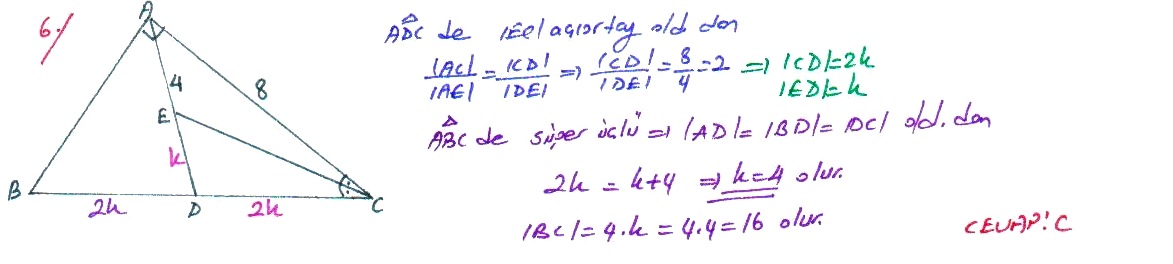 6./
A
ADC de |EC| açıortay old dan
|AC|/|AE| = |CD|/|DE| ⇒ |CD|/|DE| = 8/4 = 2 ⇒ |CD|=2k
|ED|=k
4
8
E
ABC de süper üçlü ⇒ |AD|=|BD|=|DC| old. dan
k
2k = k+4 ⇒ k=4 olur.
B
2k
D
2k
C
|BC|=4.k=4.4=16 olur.
CEVAP: C